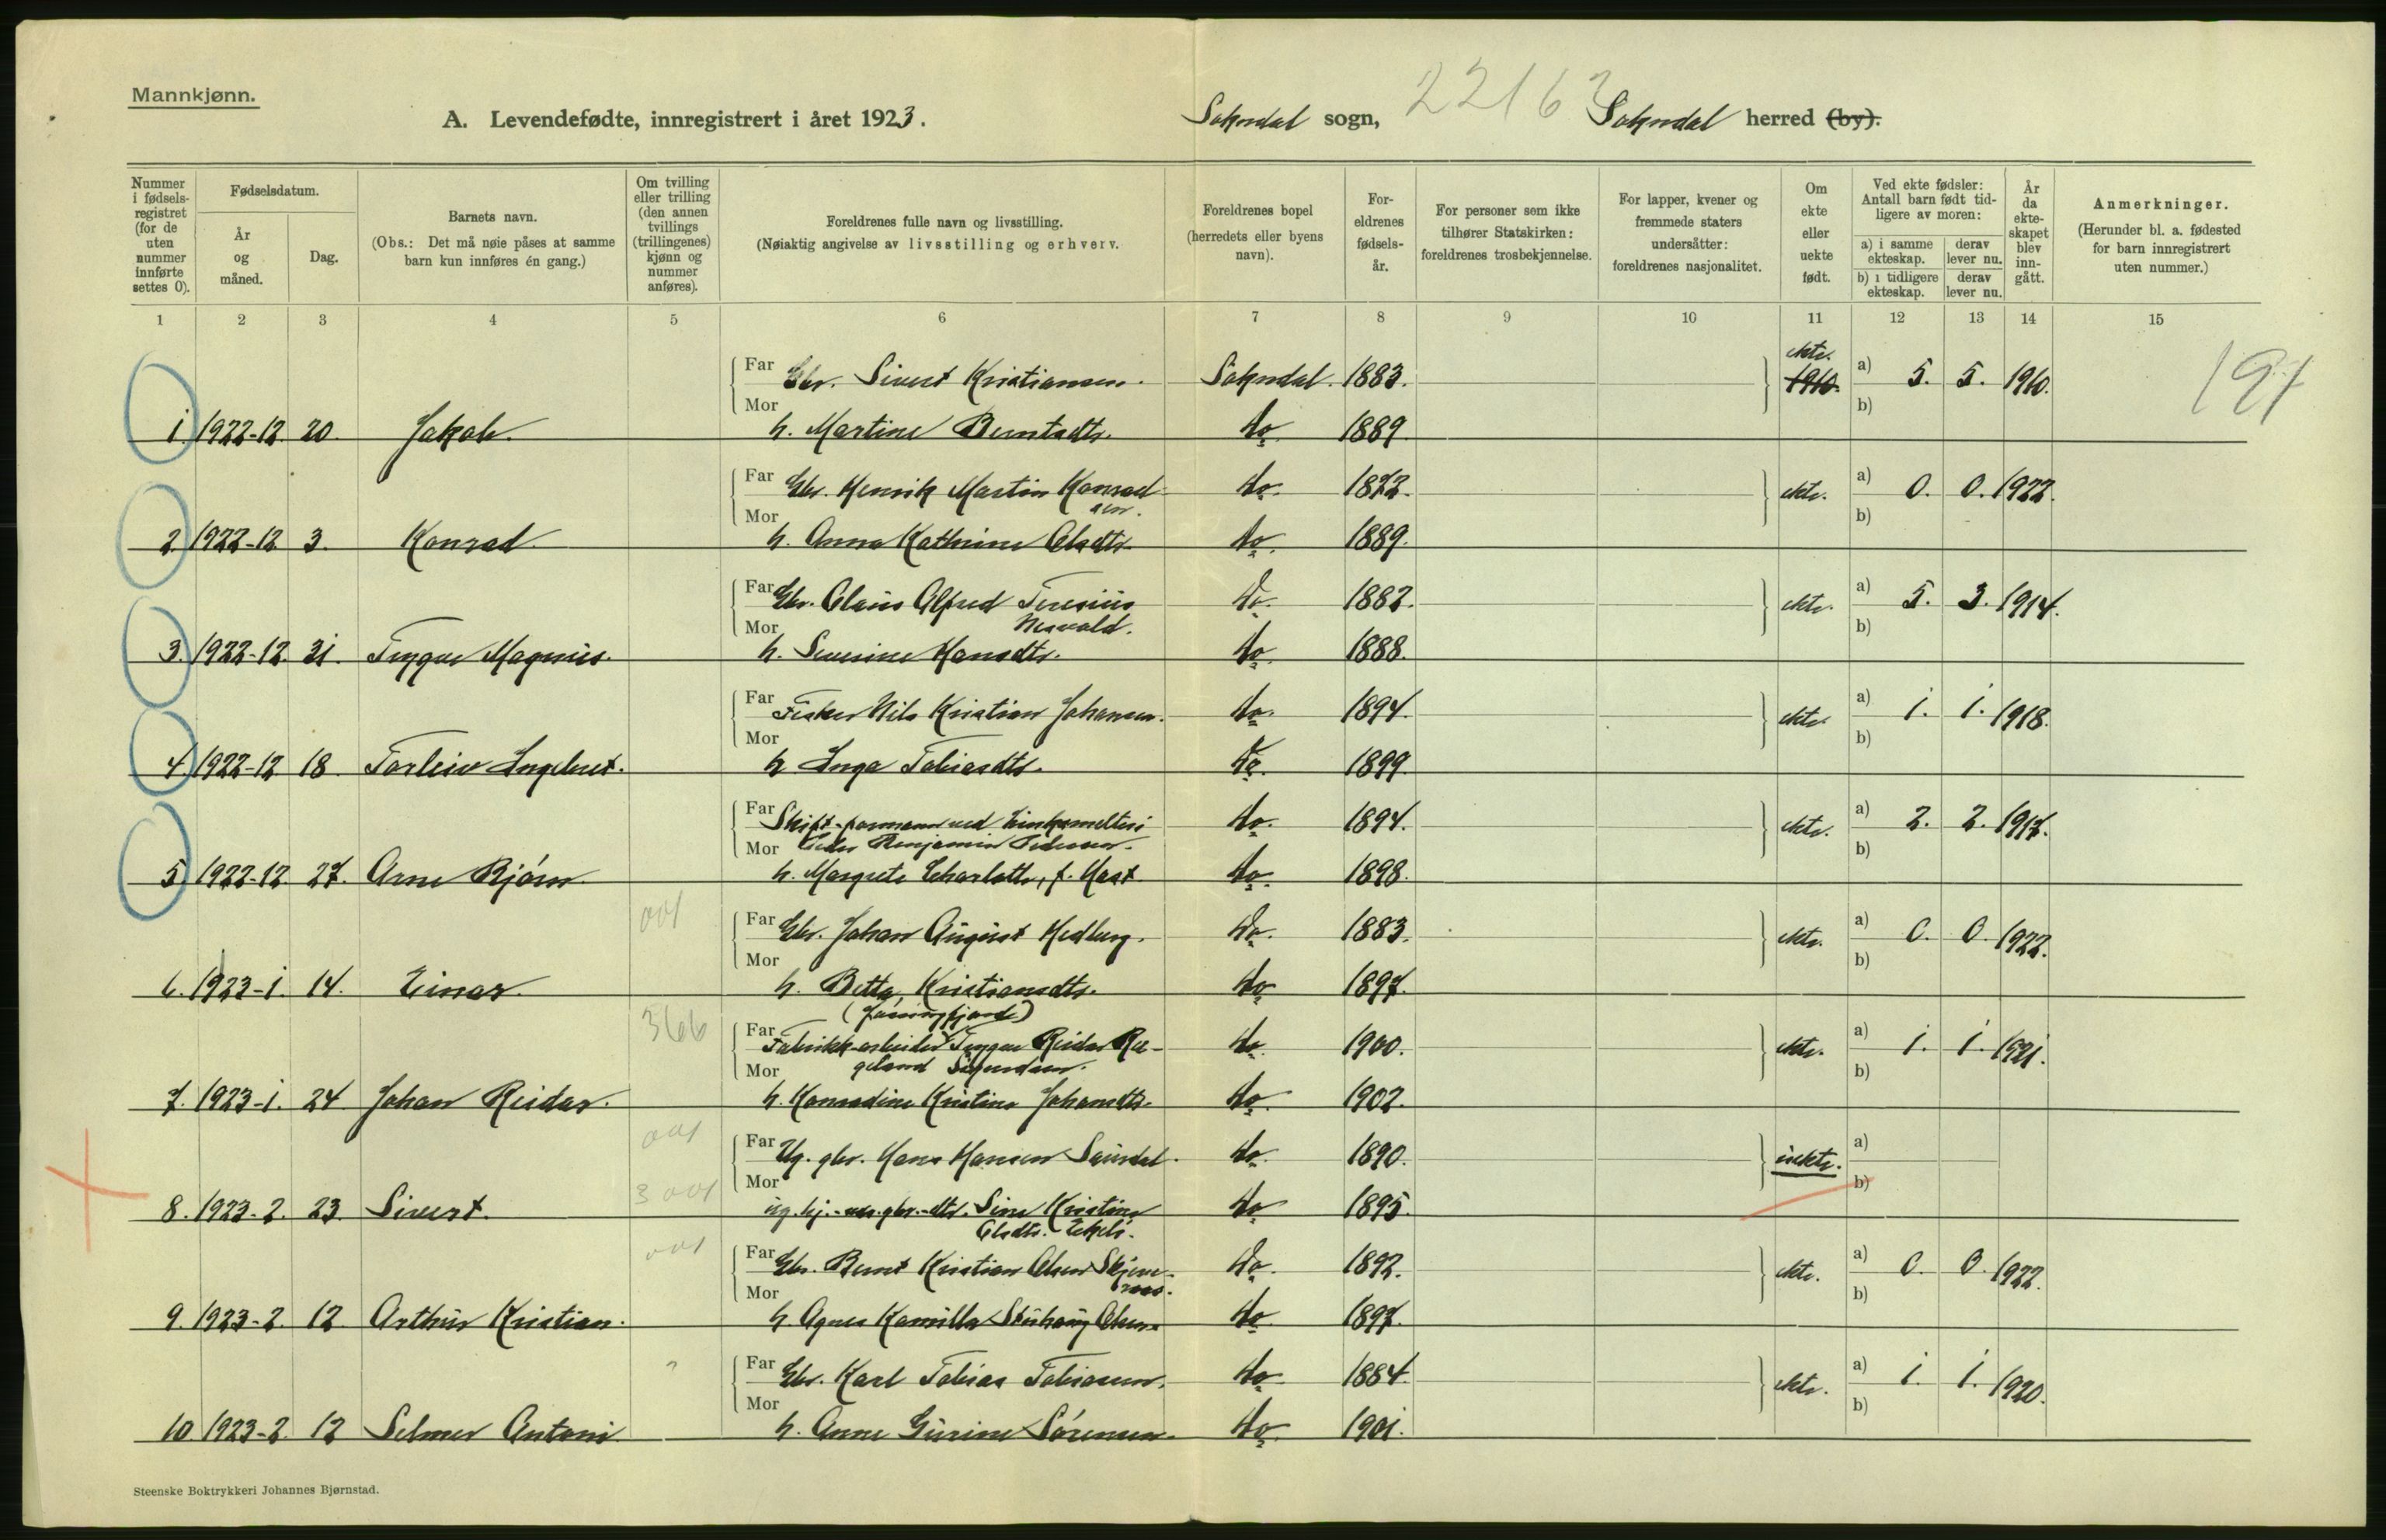 Mannkjønn.
A. Levendefødte, innregistrert i året 1923.
Sokndal sogn, 22163 Sokndal herred (by).
Nummer i fødsels-registret (for de uten nummer innførte settes 0).
Fødselsdatum.
År og måned.
Dag.
Barnets navn.
(Obs.: Det må nøie påses at samme barn kun innføres én gang.)
Om tvilling eller trilling (den annen tvillings (trillingenes) kjønn og nummer anføres).
Foreldrenes fulle navn og livsstilling.
(Nøiaktig angivelse av livsstilling og erhverv.
Foreldrenes bopel (herredets eller byens navn).
For-eldrenes fødsels-år.
For personer som ikke tilhører Statskirken: foreldrenes trosbekjennelse.
For lapper, kvener og fremmede staters undersåtter: foreldrenes nasjonalitet.
Om ekte eller uekte født.
Ved ekte fødsler: Antall barn født tid-ligere av moren:
a) i samme ekteskap.
derav lever nu.
b) i tidligere ekteskap.
derav lever nu.
År da ekte-skapet blev inn-gått.
Anmerkninger.
(Herunder bl. a. fødested for barn innregistrert uten nummer.)
1 2 3 4 5 6 7 8 9 10 11 12 13 14 15
Far Gbr. Sivert Kristiansen. Sokndal. 1883. ekte. 1910. a) 5. 5. 1910. 191
Mor b)
1. 1922-12. 20. Jakob. h. Martine Berntsdtr. do. 1889.
Far Gbr. Henrik Martin Konrad- do. 1872. ekte. a) 0. 0. 1922.
Mor sen. b)
2. 1922-12 3. Konrad. h. Anna Kathrine Olsdtr. do. 1889.
Far Gbr. Olaus Alfred Teresius do. 1882. ekte. a) 5. 3. 1914.
Mor Nesvold. b)
3. 1922-12. 31. Trygve Magnus. h. Severine Hansdtr. do. 1888.
Far Fisker Nils Kristian Johansen. do. 1894. ekte. a) 1. 1. 1918.
Mor b)
4. 1922-12 18. Torleiv Ingebret. h. Inga Tobiasdtr. do. 1899.
Far Skift-formann ved Zinksmelteri do. 1894. ekte. a) 2. 2. 1917.
Mor Peder Benjamin Pedersen. b)
5. 1922-12. 27. Arne Bjørn. h. Margrete Charlotte, f. Hast. do. 1898.
001
Far Gbr. Johan August Hedberg. do. 1883. ekte. a) 0. 0. 1922.
Mor b)
6. 1923-1. 14. Einar. h. Betty Kristiansdtr. do. 1897.
(Jøssingfjord)
366
Far Fabrikk-arbeider Trygve Reidar Re- do. 1900. ekte. a) 1. 1. 1921.
Mor geland Sigurdsen. b)
7. 1923-1. 24 Johan Reidar. h. Konradine Kristine Johansdtr. do. 1902.
001
Far Ug. gbr. Hans Hansen Saurdal. do. 1890. uekte. a)
Mor b)
8. 1923-2. 23. Sivert. 3 001 ug. hj.-v. gbr.-dtr. Sine Kristine do. 1895.
Olsdtr.
001
Far Gbr. Bernt Kristian Olsen Skjeve- do. 1892. ekte. a) 0. 0. 1922.
Mor b)
9. 1923-2. 12 Arthur Kristian. h. Agnes Kamilla Olsen do. 1897.
Far Gbr. Karl Tobias Tobiasen. do. 1884. ekte. a) 1. 1. 1920.
Mor b)
10. 1923-2. 12 Selmer Antoni h. Anne Gurine Sørensen. do. 1901.
Steenske Boktrykkeri Johannes Bjørnstad.